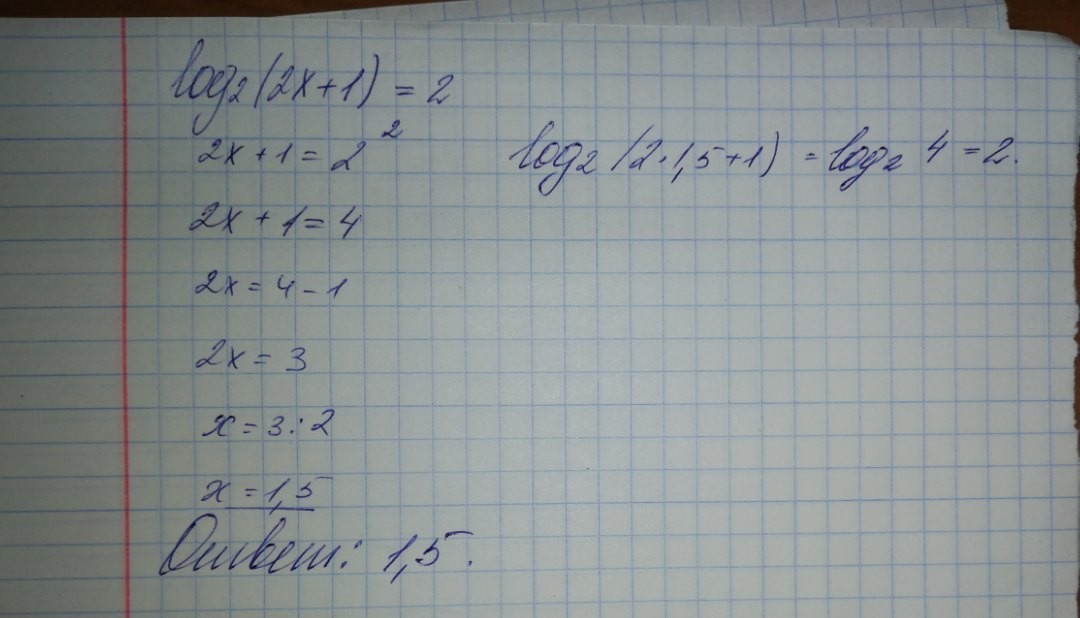 log₂(2x+1) = 2
2x+1 = 2²
2x + 1 = 4
2x = 4 - 1
2x = 3
x = 3:2
x = 1,5
Ответ: 1,5.
log₂(2·1,5+1) = log₂ 4 = 2.